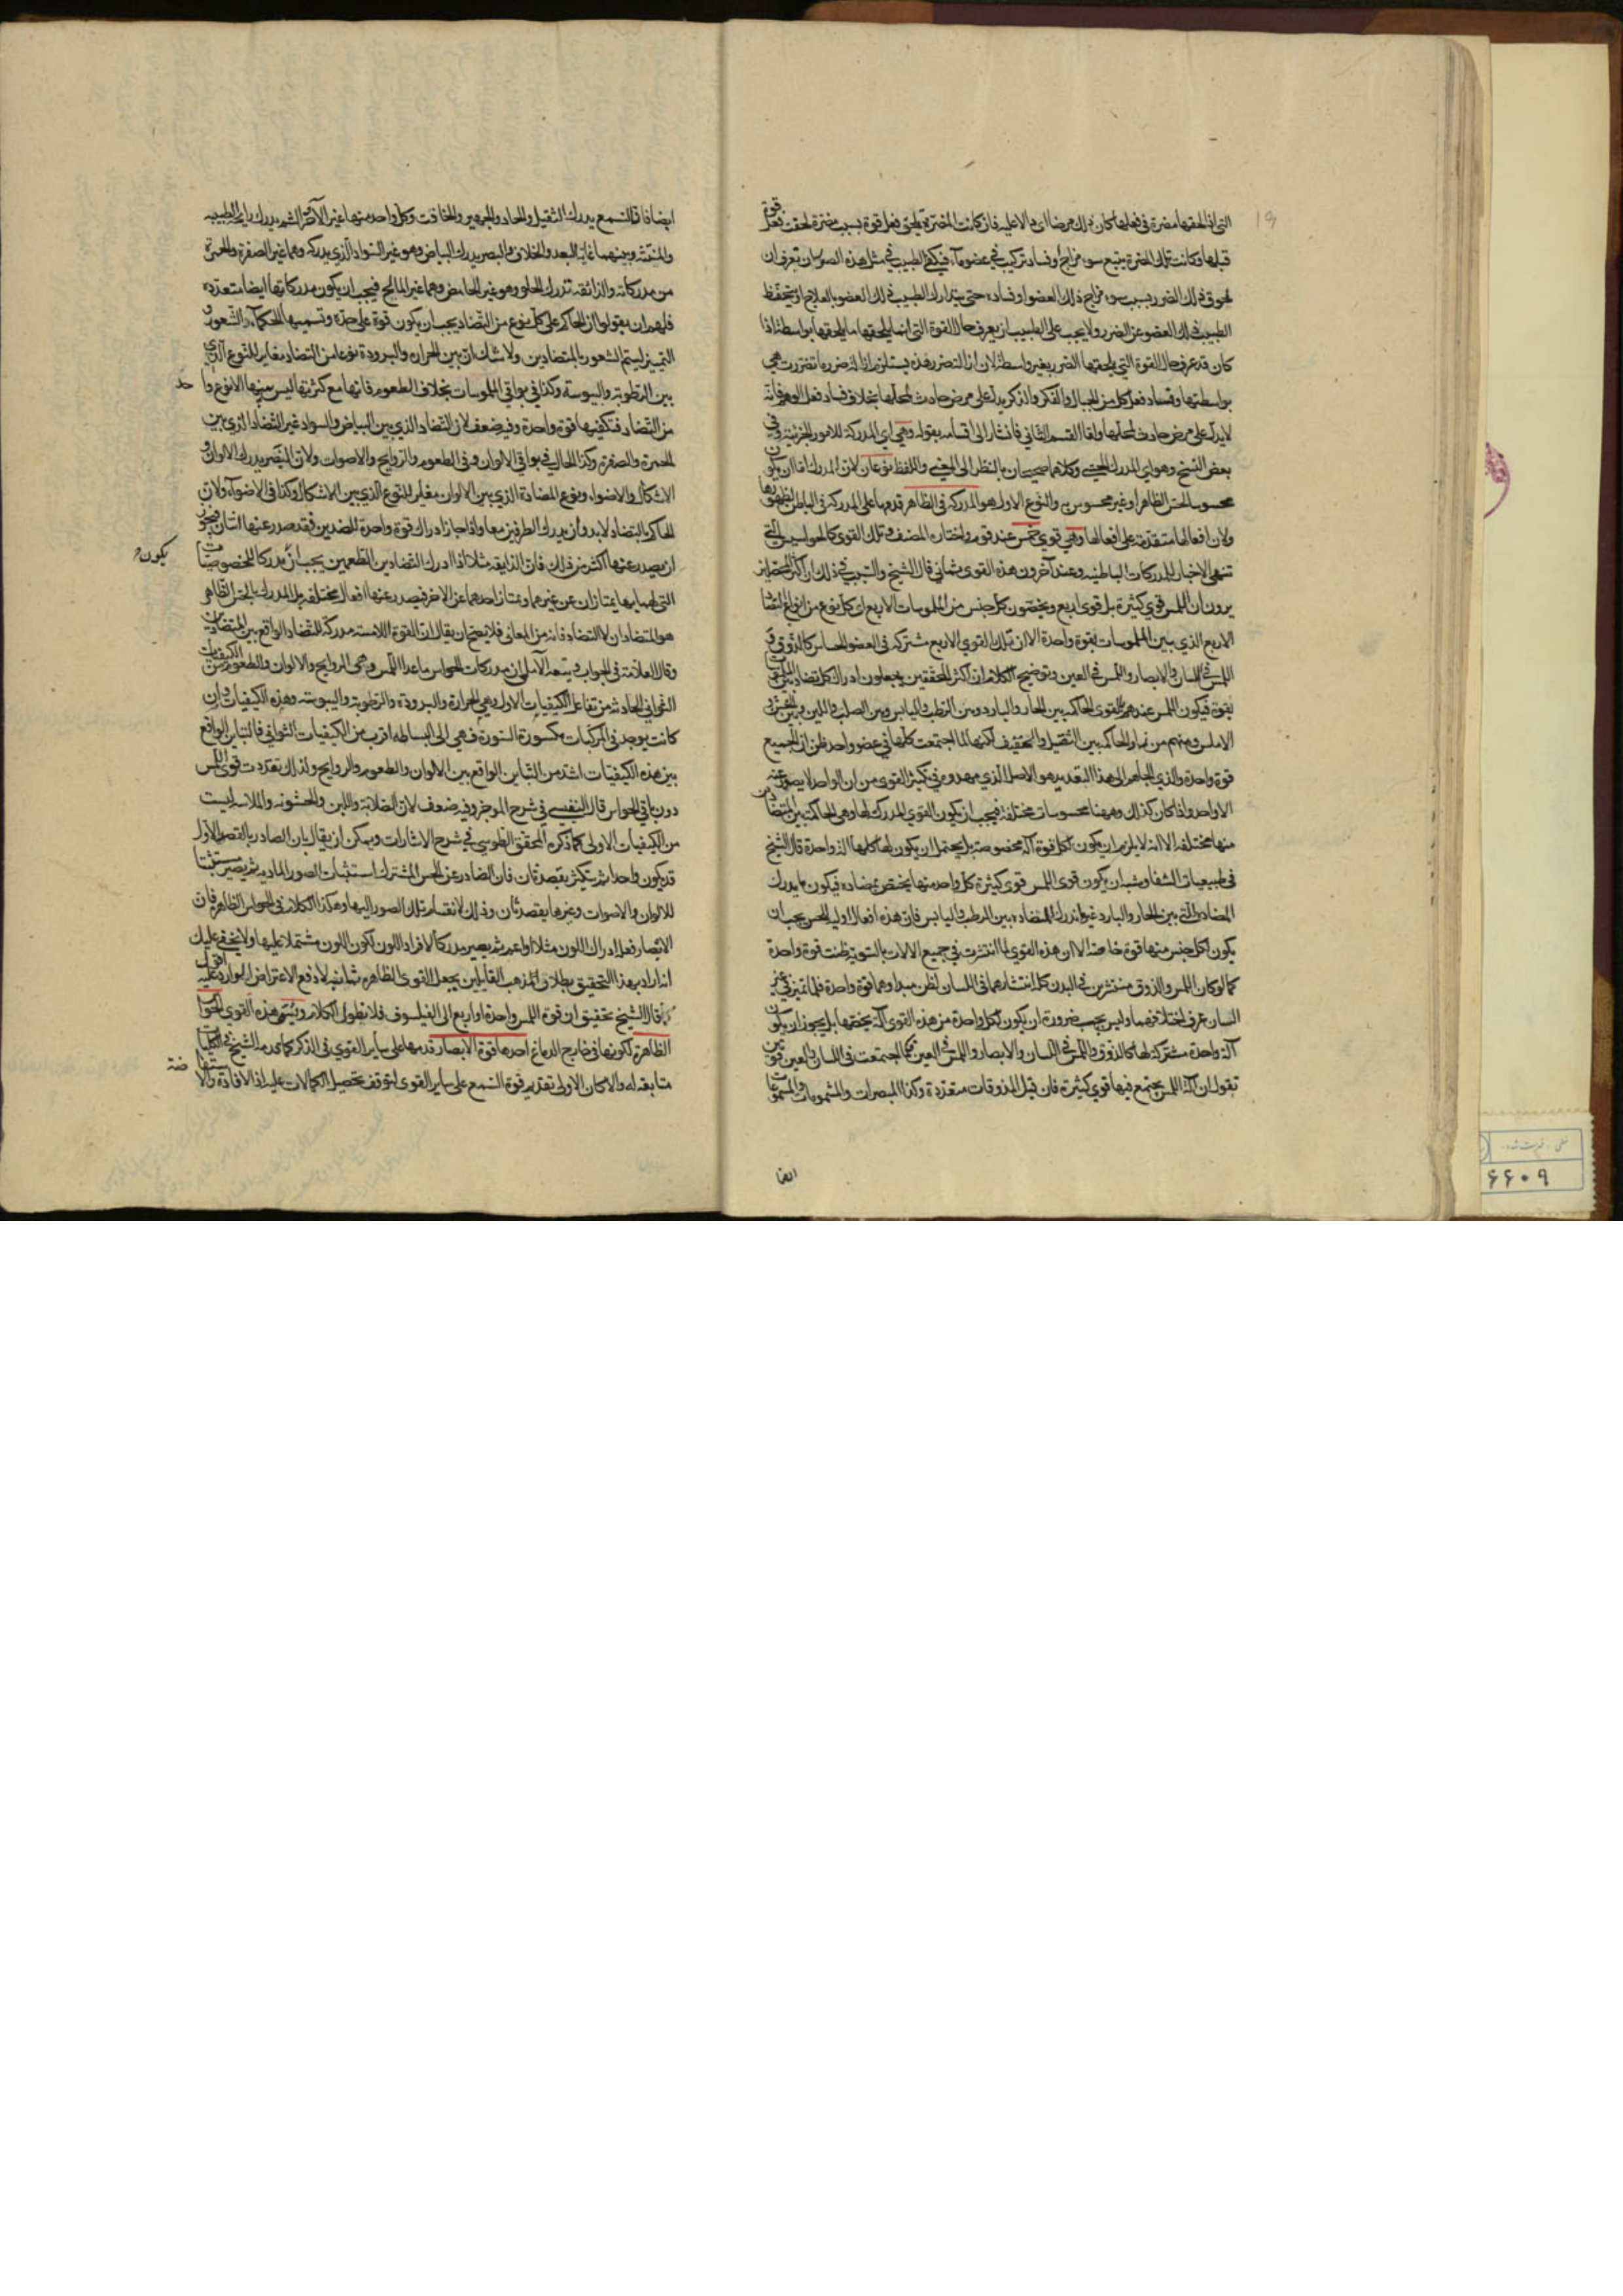 التی اذا لحقها مضرة فی فعلها کان ذلک مرضا لا فان کانت المضرة تلحق فعل قوة بسبب مضرة لحقت فعل قوة
قبلها وکانت تلک المضرة یتبع سوء مزاج او فساد ترکیب فی عضو ما فیکفی الطبیب فی مثل هذه الصورة ان یعرف ان
لحوق ذلک الضرر بسبب سوء مزاج ذلک العضو او فساده حتی یتدارک الطبیب ذلک العضو بالعلاج او یتحفظ
الطبیب ذلک العضو عن الضرر ولا یجب علی الطبیب ان یعرف حال القوة التی انما یلحقها ما یلحقها بواسطة اذا
کان قد عرف حال القوة التی یلحقها الضرر بغیر واسطة لان ازالة ضرر هذه یستلزم ازالة ضرر ما تضررت هی
بواسطتها وفساد فعل کل من الخیال والفکر والذکر یدل علی مرض حادث لمحلها بخلاف فساد فعل الوهم فانه
لا یدل علی مرض حادث لمحلها واما القسم الثانی فاشار الی اقسامه بقوله وهی ای المدرکة للامور الجزئیة وفی
بعض النسخ وهو ای المدرک الحسی وکلاهما صحیحان بالنظر الی المعنی واللفظ نوعان لان المدرک اما ان یکون
محسوسا لحس الظاهر او غیر محسوس به والنوع الاول هو المدرکة فی الظاهر قدمها علی المدرکة فی الباطن لظهورها
ولان افعالها متقدمة علی افعالها وهی قوی خمس عند قوم واختاره المصنف وتلک القوی کالجواسیس التی
تنهی الاخبار للمدرکات الباطنیه وعند آخرون هذه القوی ثمانی قال الشیخ والسبب فی ذلک ان اکثر المحصلین
یرون ان اللمس قوی کثیرة بل قوی اربع ویخصون کل جنس من الملموسات الاربع ای کل نوع من انواع التضاد
الاربع الذی بین الملموسات بقوة واحدة الا ان تلک القوی الاربع مشترکه فی العضو الحساس کالذوق و
اللمس فی اللسان والابصار واللمس فی العین وتوضیح الکلام ان اکثر المحققین یجعلون ادراک کل تضاد بین الملموسات
بقوة فیکون اللمس عندهم القوی الحاکمة بین الحار والبارد وبین الرطب والیابس وبین الصلب واللین وبین الخشن و
الاملس ومنهم من زاد الحاکمة بین الثقیل والخفیف لکنها لما اجتمعت کلها فی عضو واحد ظن ان الجمیع
قوة واحدة والذی الجأهم الی هذا التعدید هو الاصل الذی مهدوه فی تکثیر القوی من ان الواحد لا یصدر عنه
الا واحد واذا کان کذلک وههنا محسوسات مختلفة فیجب ان یکون القوی المدرکة لها وهی الحاکمة بین المتضادین
منها مختلفه الا انه لا یلزم ان یکون لکل قوة آلة مخصوصة بل یحتمل ان یکون لها کلها آلة واحدة قال الشیخ
فی طبیعیات الشفا ویشبه ان یکون قوی اللمس قوی کثیرة کل واحد منها یختص بمضادة فیکون ما یدرک
المضادة التی بین الحار والبارد غیر ما یدرک المضادة بین الرطب والیابس فان هذه افعال اولیه للحس یجب ان
یکون لکل جنس منها قوة خاصة الا ان هذه القوی لما انتشرت فی جمیع الآلات بالسویة ظنت قوة واحدة
کما لو کان اللمس والذوق منتشرین فی البدن کله انتشارهما فی اللسان لظن مبدأوهما قوة واحدة فلما تمیزا فی غیر
اللسان عرف اختلافهما ولیس یجب ضرورة ان یکون لکل واحدة من هذه القوی آلة یخصها بل یجوز ان یکون
آلة واحدة مشترکة لها کالذوق واللمس فی اللسان والابصار واللمس فی العین فکما اجتمعت فی اللسان والعین قوتین
نقول ان آلة اللمس یجتمع فیها قوی کثیرة فان قیل المذوقات متعددة وکذا المبصرات والمشمومات والمسموعات
ایضا
ایضا فان السمع یدرک الثقیل والحاد والجهیر والخافت وکل واحد منها غیر الآخر والشم یدرک رایحة الطیبه
والمنتنة وبینهما غایة البعد والخلاف والبصر یدرک البیاض وهو غیر السواد الذی یدرکه وهما غیر الصفرة والحمرة
من مدرکاته والذائقه تدرک الحلو وهو غیر الحامض وهما غیر المالح فیجب ان یکون مدرکاتها ایضا متعددة
فلهم ان یقولوا ان الحاکم علی کل نوع من التضاد یجب ان یکون قوة علی حدة وتسمیها الحکماء الشعور و
التمییز لیتم الشعور بالمتضادین ولا شک ان بین الحرارة والبرودة نوعا من التضاد مغایر للنوع الذی
بین الرطوبة والیبوسة وکذا فی بواقی الملموسات بخلاف الطعوم فانها مع کثرتها لیس بینها الا نوع واحد
من التضاد فتکفیها قوة واحدة وفیه ضعف لان التضاد الذی بین البیاض والسواد غیر التضاد الذی بین
الحمرة والصفرة وکذا الحال فی بواقی الالوان وفی الطعوم والروایح والاصوات ولان البصر یدرک الالوان و
الاشکال والاضواء ونوع المضادة الذی بین الالوان مغایر للنوع الذی بین الاشکال وکذا فی الاضواء ولان
الحاکم بالتضاد لا بد وان یدرک الطرفین معا واذا جاز ادراک قوة واحدة للضدین فقد صدر عنها اثنان فیجوز
ان یصدر عنها اکثر من ذلک فان الذایقه مثلا اذا ادرک التضاد بین الطعمین یجب ان یکون مدرکا للخصوصیات
التی لهما بها یمتازان عن غیرهما ویمتاز احدهما عن الآخر فیصدر عنها افعال مختلفه بل المدرک بالحس الظاهر
هو المتضادان لا التضاد فانه من المعانی فلا یصح ان یقال ان القوة اللامسة مدرکة للتضاد الواقع بین المتضادین
وقال العلامة فی الجواب وتبعه الآملی ان مدرکات الحواس ما عدا اللمس وهی الروایح والالوان والطعوم من الکیفیات
الثوانی الحادثه من تفاعل الکیفیات الاول وهی الحرارة والبرودة والرطوبة والیبوسته وهذه الکیفیات وان
کانت یوجد فی المرکبات مکسورة السورة فهی الی البساطه اقرب من الکیفیات الثوانی فالتباین الواقع
بین هذه الکیفیات اشد من التباین الواقع بین الالوان والطعوم والروایح ولذلک تعددت قوی اللمس
دون باقی الحواس قال النفیسی فی شرح الموجز وفیه ضعف لان الصلابة واللین والخشونه والملاسه لیست
من الکیفیات الاولی کما ذکره المحقق الطوسی فی شرح الاشارات ویمکن ان یقال بان الصادر بالقصد الاول
قد یکون واحدا ثم یتکثر بقصد ثان فان الصادر عن الحس المشترک استثبات الصور المادیه ثم یصیر مستثبتا
للالوان والاصوات وغیرها بقصد ثان وذلک لانقسام تلک الصور الیها وهکذا الکلام فی الحواس الظاهرة فان
الابصار فعله ادراک اللون مثلا اولا ثم یصیر مدرکا لافراد اللون لکون اللون مشتملا علیها ولا یخفی علیک
اذا اراد بهذا التحقیق بطلان المذهب القایلین بجعل القوی الظاهرة ثمانیه لا دفع الاعتراض الوارد علیه اقول
قال الشیخ تحقیق ان قوة اللمس واحدة او اربع الی الفیلسوف فلا نطول الکلام وتسمی هذه القوی الحواس
الظاهرة لکونها فی خارج الدماغ احدها قوة الابصار قدمها علی سایر القوی فی الذکر کما قدمه الشیخ فی الکلیات
متابعة له والا کان الاولی تقدیم قوة السمع علی سایر القوی لتوقف تحصیل الکمالات علیه اذ الافادة والاستفاضة
۶۶۰۹